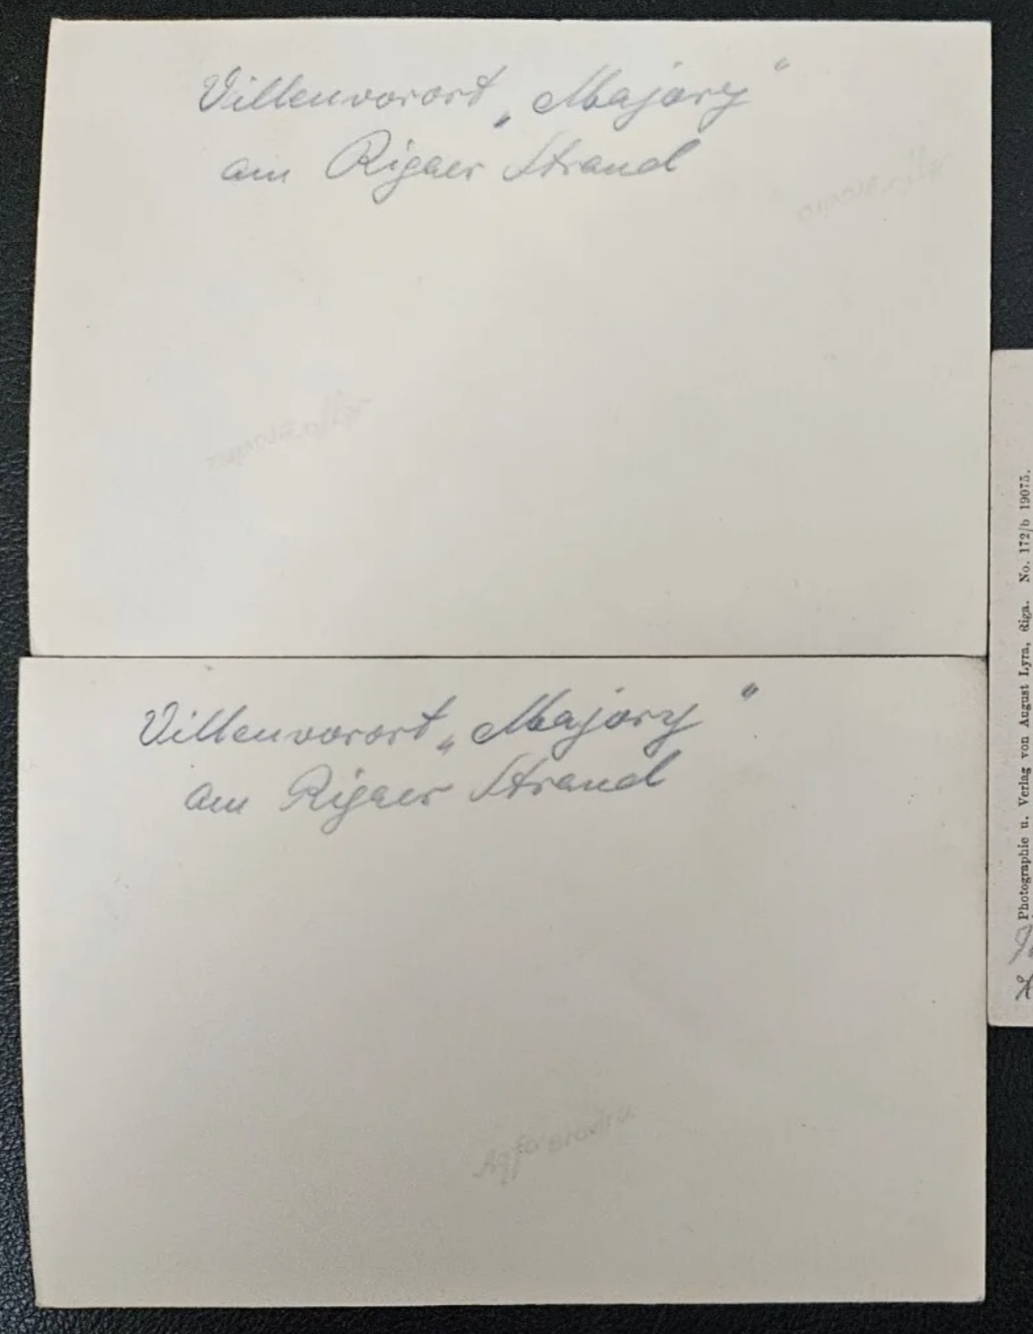 Villenvorort „Majory“
am Rigaer Strand
Villenvorort „Majory“
am Rigaer Strand
Agfa Brovira
Photographie u. Verlag von August Lyra, Riga. No. 172/b 19075.